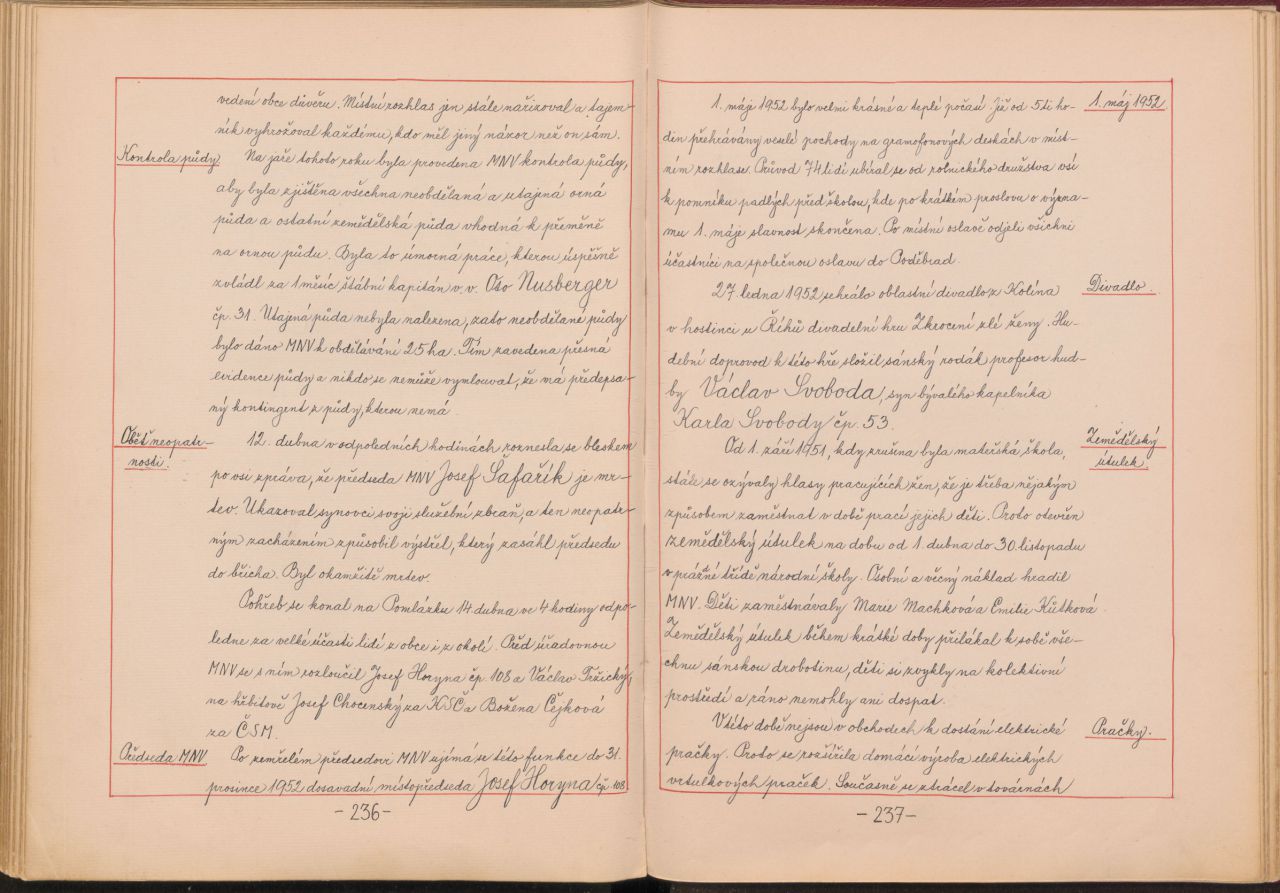 vedení obce důvěru. Místní rozhlas jen stále nařizoval a tajem-
ník vyhrožoval každému, kdo měl jiný názor než on sám.
Kontrola půdy.
Na jaře tohoto roku byla provedena MNV kontrola půdy,
aby byla zjištěna všechna neobdělaná a utajná orná
půda a ostatní zemědělská půda vhodná k přeměně
na ornou půdu. Byla to úmorná práce, kterou úspěšně
zvládl za 1 měsíc štábní kapitán v. v. Oto Nusberger
čp. 31. Utajná půda nebyla nalezena, zato neobdělané půdy
bylo dáno MNV k obdělávání 25 ha. Tím zavedena přesná
evidence půdy a nikdo se nemůže vymlouvat, že má předepsa-
ný kontingent z půdy, kterou nemá.
Oběť neopatr-
nosti.
12. dubna v odpoledních hodinách roznesla se bleskem
po vsi zpráva, že předseda MNV Josef Šafařík je mr-
tev. Ukazoval synovci svoji služební zbraň, a ten neopatr-
ným zacházením způsobil výstřel, který zasáhl předsedu
do břicha. Byl okamžitě mrtev.
Pohřeb se konal na Pomlázku 14. dubna ve 4 hodiny odpo-
ledne za velké účasti lidí z obce i z okolí. Před úřadovnou
MNV se s ním rozloučil Josef Horyna čp. 108 a Václav Tržický,
na hřbitově Josef Chocenský za KSČ a Božena Čejková
za ČSM.
Předseda MNV
Po zemřelém předsedovi MNV ujímá se této funkce do 31.
prosince 1952 dosavadní místopředseda Josef Horyna čp. 108
- 236 -
1. máje 1952 bylo velmi krásné a teplé počasí. Již od 5 ti ho-
1. máj 1952.
din přehrávány veselé pochody na gramofonových deskách v míst-
ním rozhlase. Průvod 74 lidí ubíral se od rolnického družstva vsí
k pomníku padlých před školou, kde po krátkém proslovu o význa-
mu 1. máje slavnost skončena. Po místní oslavě odjeli všichni
účastníci na společnou oslavu do Poděbrad.
Divadlo.
27. ledna 1952 sehrálo oblastní divadlo z Kolína
v hostinci u Říhů divadelní hru Zkrocení zlé ženy. Hu-
dební doprovod k této hře složil sánský rodák profesor hud-
by Václav Svoboda, syn bývalého kapelníka
Karla Svobody čp. 53.
Zemědělský
útulek.
Od 1. září 1951, kdy zrušena byla mateřská škola,
stále se ozývaly hlasy pracujících žen, že je třeba nějakým
způsobem zaměstnat v době prací jejich děti. Proto otevřen
zemědělský útulek na dobu od 1. dubna do 30. listopadu
v prázné třídě národní školy. Osobní a věcný náklad hradil
MNV. Děti zaměstnávaly Marie Machková a Emilie Kůtková.
Zemědělský útulek během krátké doby přilákal k sobě vše-
chnu sánskou drobotinu, děti si zvykly na kolektivní
prostředí a ráno nemohly ani dospat.
Pračky.
V této době nejsou v obchodech k dostání elektrické
pračky. Proto se rozšířila domácí výroba elektrických
vrtulkových praček. Současně se ztrácel v továrnách
- 237 -